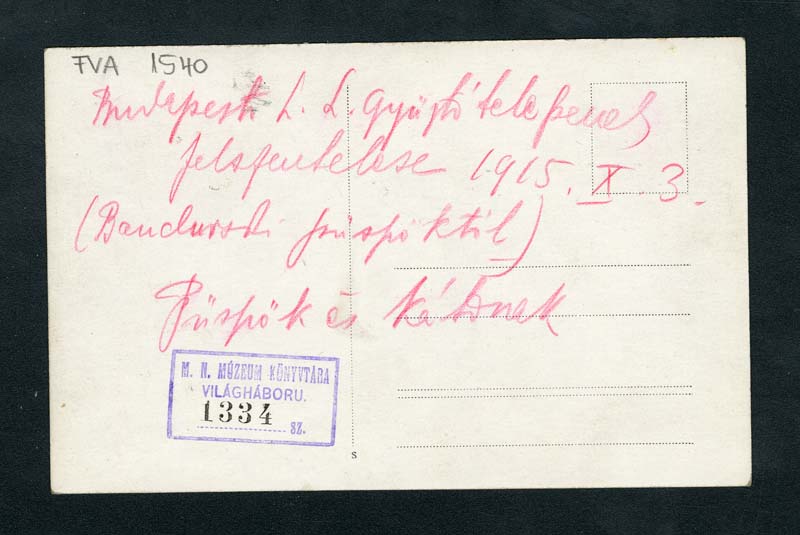 FVA 1540
Budapesti L. L. gyüjtőtelepenek
felszentelese 1915. X. 3.
(Bandurski püspöktől)
Püspök és
M. N. MÚZEUM KÖNYVTÁRA
VILÁGHÁBORU.
1334 SZ.
S